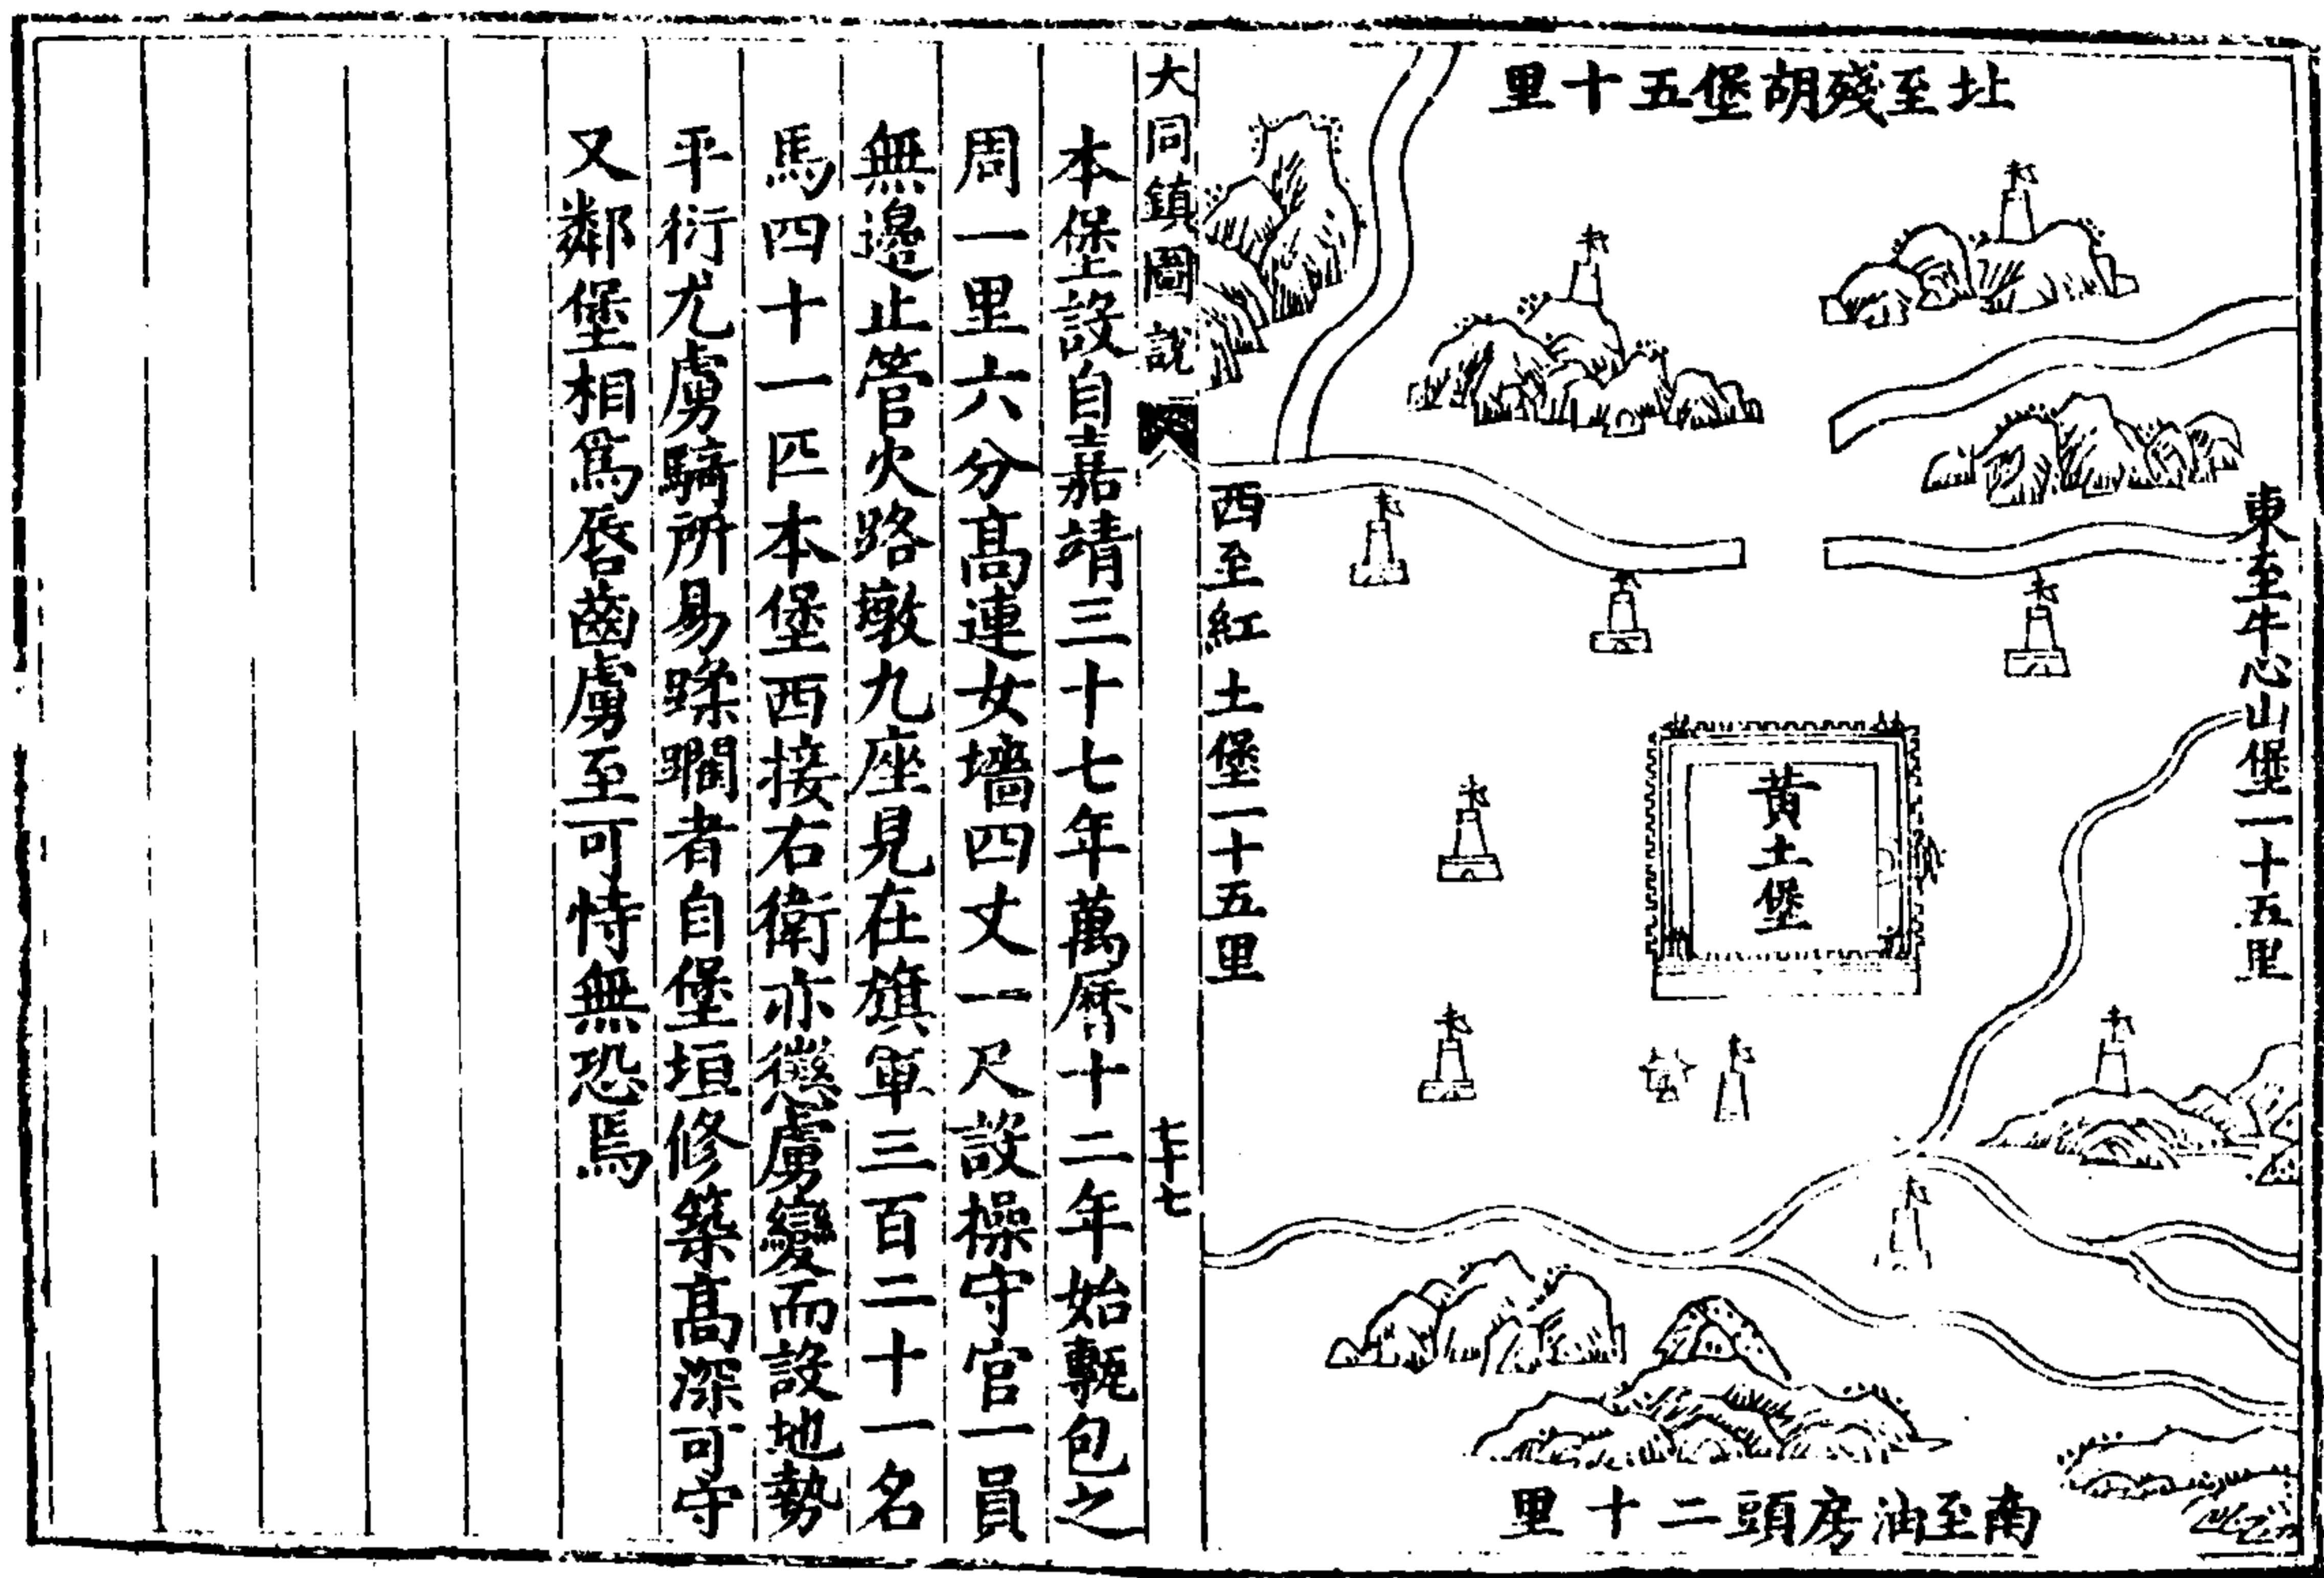 北至殘胡堡五十里
東至牛心山堡一十五里
黃土堡
南至油房頭二十里
西至紅土堡一十五里
大同鎮圖說
七十七
本堡設自嘉靖三十七年萬曆十二年始甎包之
周一里六分高連女墻四丈一尺設操守官一員
無邊止管火路墩九座見在旗軍三百二十一名
馬四十一匹本堡西接右衛亦懲虜變而設地勢
平衍尤虜騎所易蹂躪者自堡垣修築高深可守
又鄰堡相為唇齒虜至可恃無恐焉